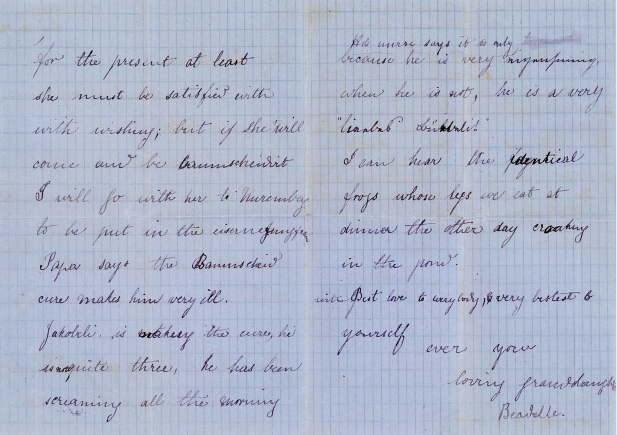 for the present at least
she must be satisfied with
with wishing; but if she will
come and be baunscheidirt
I will go with her to Nuremberg
to be put in the eiserne Jungfrau
Papa says the Baunscheid
cure makes him very ill.
Jakobeli is making the cure, he
is not quite three, he has been
screaming all the morning
His nurse says it is only
because he is very
when he is not, he is a very
"
I can hear the identical
frogs whose legs we eat at
dinner the other day croaking
in the pond.
with Best love to everybody, & very bestest to
yourself
ever your
loving granddaughter